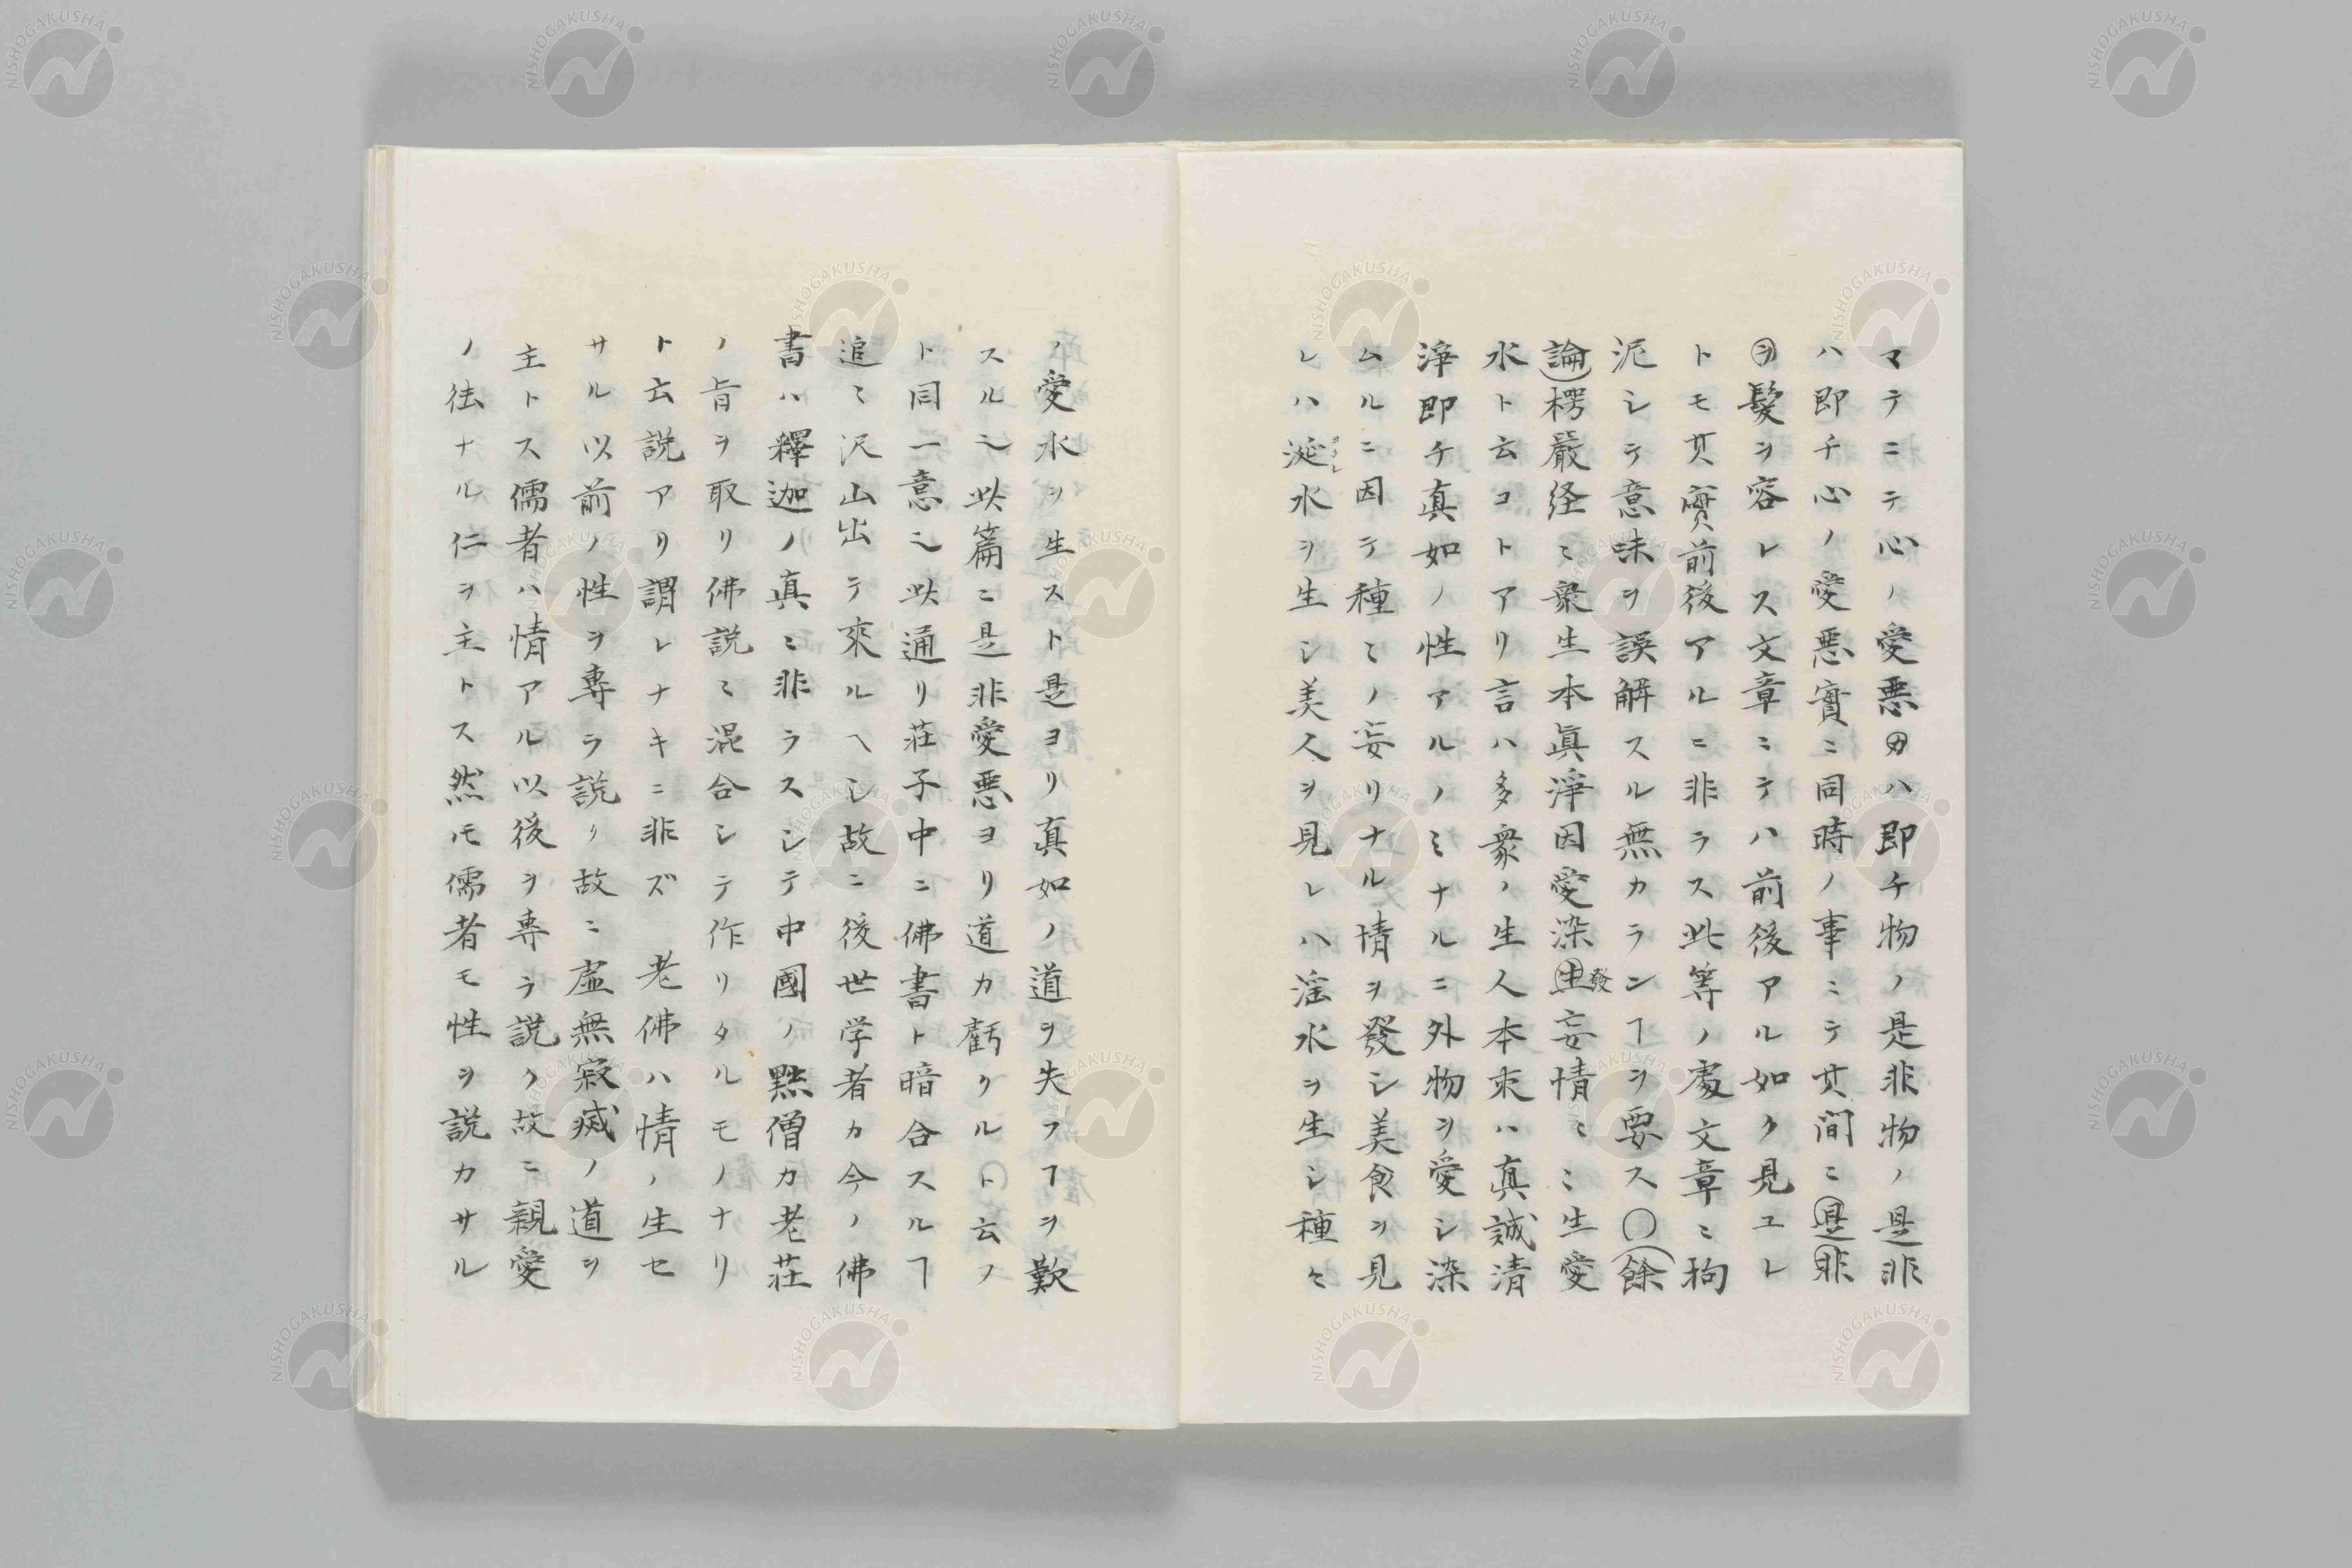 マテニテ心ノ愛悪㋕ハ即チ物ノ是非物ノ是非
ハ即チ心ノ愛悪實ニ同時ノ事ニテ其間ニ是非
㋾髪ヲ容レス文章ニテハ前後アル如ク見ユレ
トモ其實前後アルニ非ラス此等ノ處文章ニ拘
泥シテ意味ヲ誤解スル無カランヿヲ要ス〇餘
論楞嚴経ニ衆生本眞淨因愛染生發妄情ミミ生愛
水ト云コトアリ言ハ多衆ノ生人本来ハ真誠清
淨即チ真如ノ性アルノミナルニ外物ヲ愛シ染
ムルニ因テ種ミノ妄リナル情ヲ發シ美食ヲ見
レハ涎ヨタレ水ヲ生シ美人ヲ見レハ淫水ヲ生シ種々
ノ愛水ヲ生スト是ヨリ真如ノ道ヲ失フヿヲ歎
スル也此篇ニ是非愛悪ヨリ道カ虧クルト云ノ
ト同一意也此通リ荘子中ニ佛書ト暗合スルヿ
追ミ沢山出テ來ルヘシ故ニ後世学者カ今ノ佛
書ハ釋迦ノ真ニ非ラスシテ中國ノ黠僧カ老荘
ノ旨ヲ取リ佛説ミ混合シテ作リタルモノナリ
ト云説アリ謂レナキニ非ズ 老佛ハ情ノ生セ
サル以前ノ性ヲ專ラ説ク故ニ虚無寂滅ノ道ヲ
主トス儒者ハ情アル以後ヲ專ラ説ク故ニ親愛
ノ法ナル仁ヲ主トス然ル𪜈儒者モ性ヲ説カサル